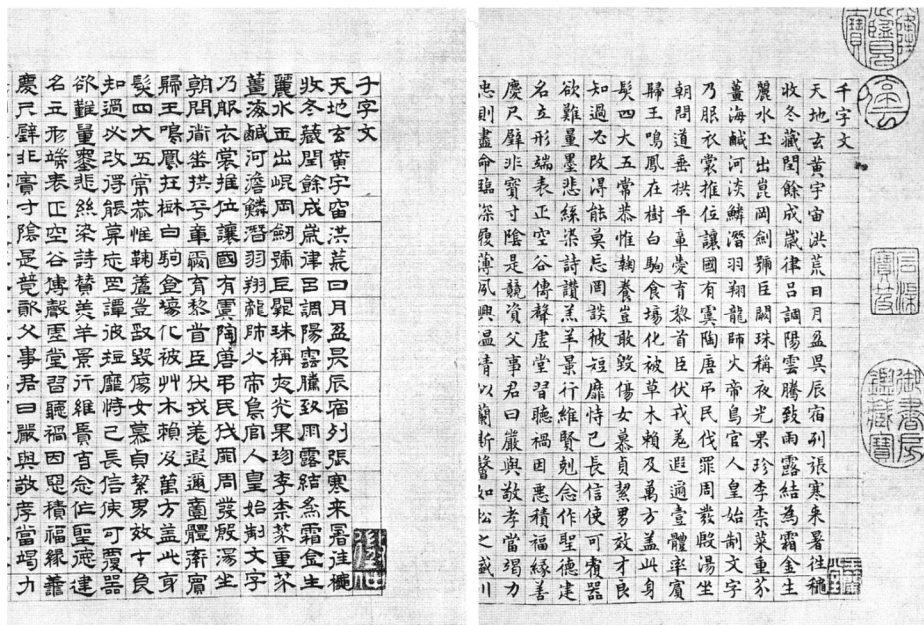 千字文
天地玄黃宇宙洪荒日月盈昃辰宿列張寒来暑往穐
收冬藏閏餘成歲律呂調陽雲騰致雨露結為霜金生
麗水玉出崑岡劍號巨闕珠稱夜光果珍李柰菜重芥
薑海鹹河淡鱗潛羽翔龍師火帝鳥官人皇始制文字
乃服衣裳推位讓國有虞陶唐吊民伐罪周發殷湯坐
朝問道垂拱平章愛育黎首臣伏戎羌遐邇壹體率賓
歸王鳴鳳在樹白駒食場化被草木賴及萬方盖此身
髮四大五常恭惟鞠養豈敢毀傷女慕貞絜男效才良
知過必改得能莫忘罔談彼短靡恃己長信使可覆器
欲難量墨悲絲染詩讚羔羊景行維賢剋念作聖德建
名立形端表正空谷傳聲虛堂習聽禍因惡積福緣善
慶尺璧非寶寸陰是競資父事君曰嚴與敬孝當竭力
忠則盡命臨深履薄夙興温凊以蘭斯馨如松之盛川
石渠寶笈
御書房鑑藏寶
千字文
天地玄黃宇宙洪荒日月盈昃辰宿列張寒来暑往穐
收冬藏閏餘成歲律呂調陽雲騰致雨露結為霜金生
麗水玉出崐岡劍號巨闕珠稱夜光果珍李柰菜重芥
薑海鹹河澹鱗潛羽翔龍師火帝鳥官人皇始制文字
乃服衣裳推位讓國有虞陶唐弔民伐罪周發殷湯坐
朝問道垂拱平章愛育黎首臣伏戎羌遐邇壹體率賓
歸王鳴鳳在樹白駒食場化被艸木賴及萬方盖此身
髮四大五常恭惟鞠養豈敢毀傷女慕貞絜男效才良
知過必改得能莫忘罔譚彼短靡恃己長信使可覆器
欲難量墨悲絲染詩讚羔羊景行維賢克念作聖德建
名立形端表正空谷傳聲虛堂習聽禍因惡積福緣善
慶尺璧非寶寸陰是競資父事君曰嚴與敬孝當竭力